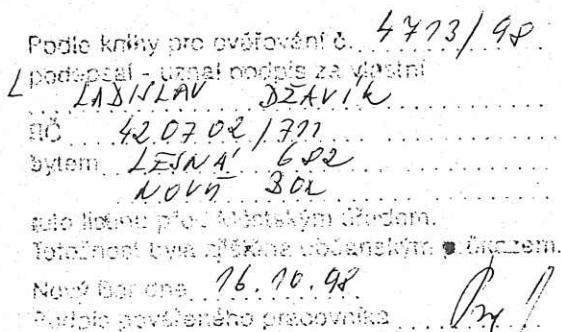 Podle knihy pro ověřování č. 4713/98
podepsal - uznal podpis za vlastní
LADISLAV DŽAVÍK
RČ 420702/711
bytem LESNÁ 682
NOVÝ BOR
tuto listinu před Městským úřadem.
Totožnost byla zjištěna občanským průkazem.
Nový Bor dne 16.10.98
Podpis pověřeného pracovníka